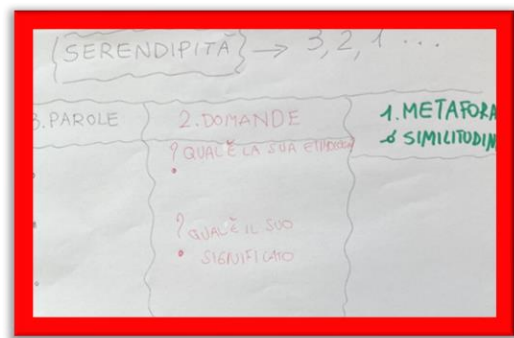 SERENDIPITÀ → 3, 2, 1 ...
3. PAROLE
2. DOMANDE
? QUAL È LA SUA
? QUAL È IL SUO
• SIGNIFICATO
1. METAFORA
o SIMILITUDIN